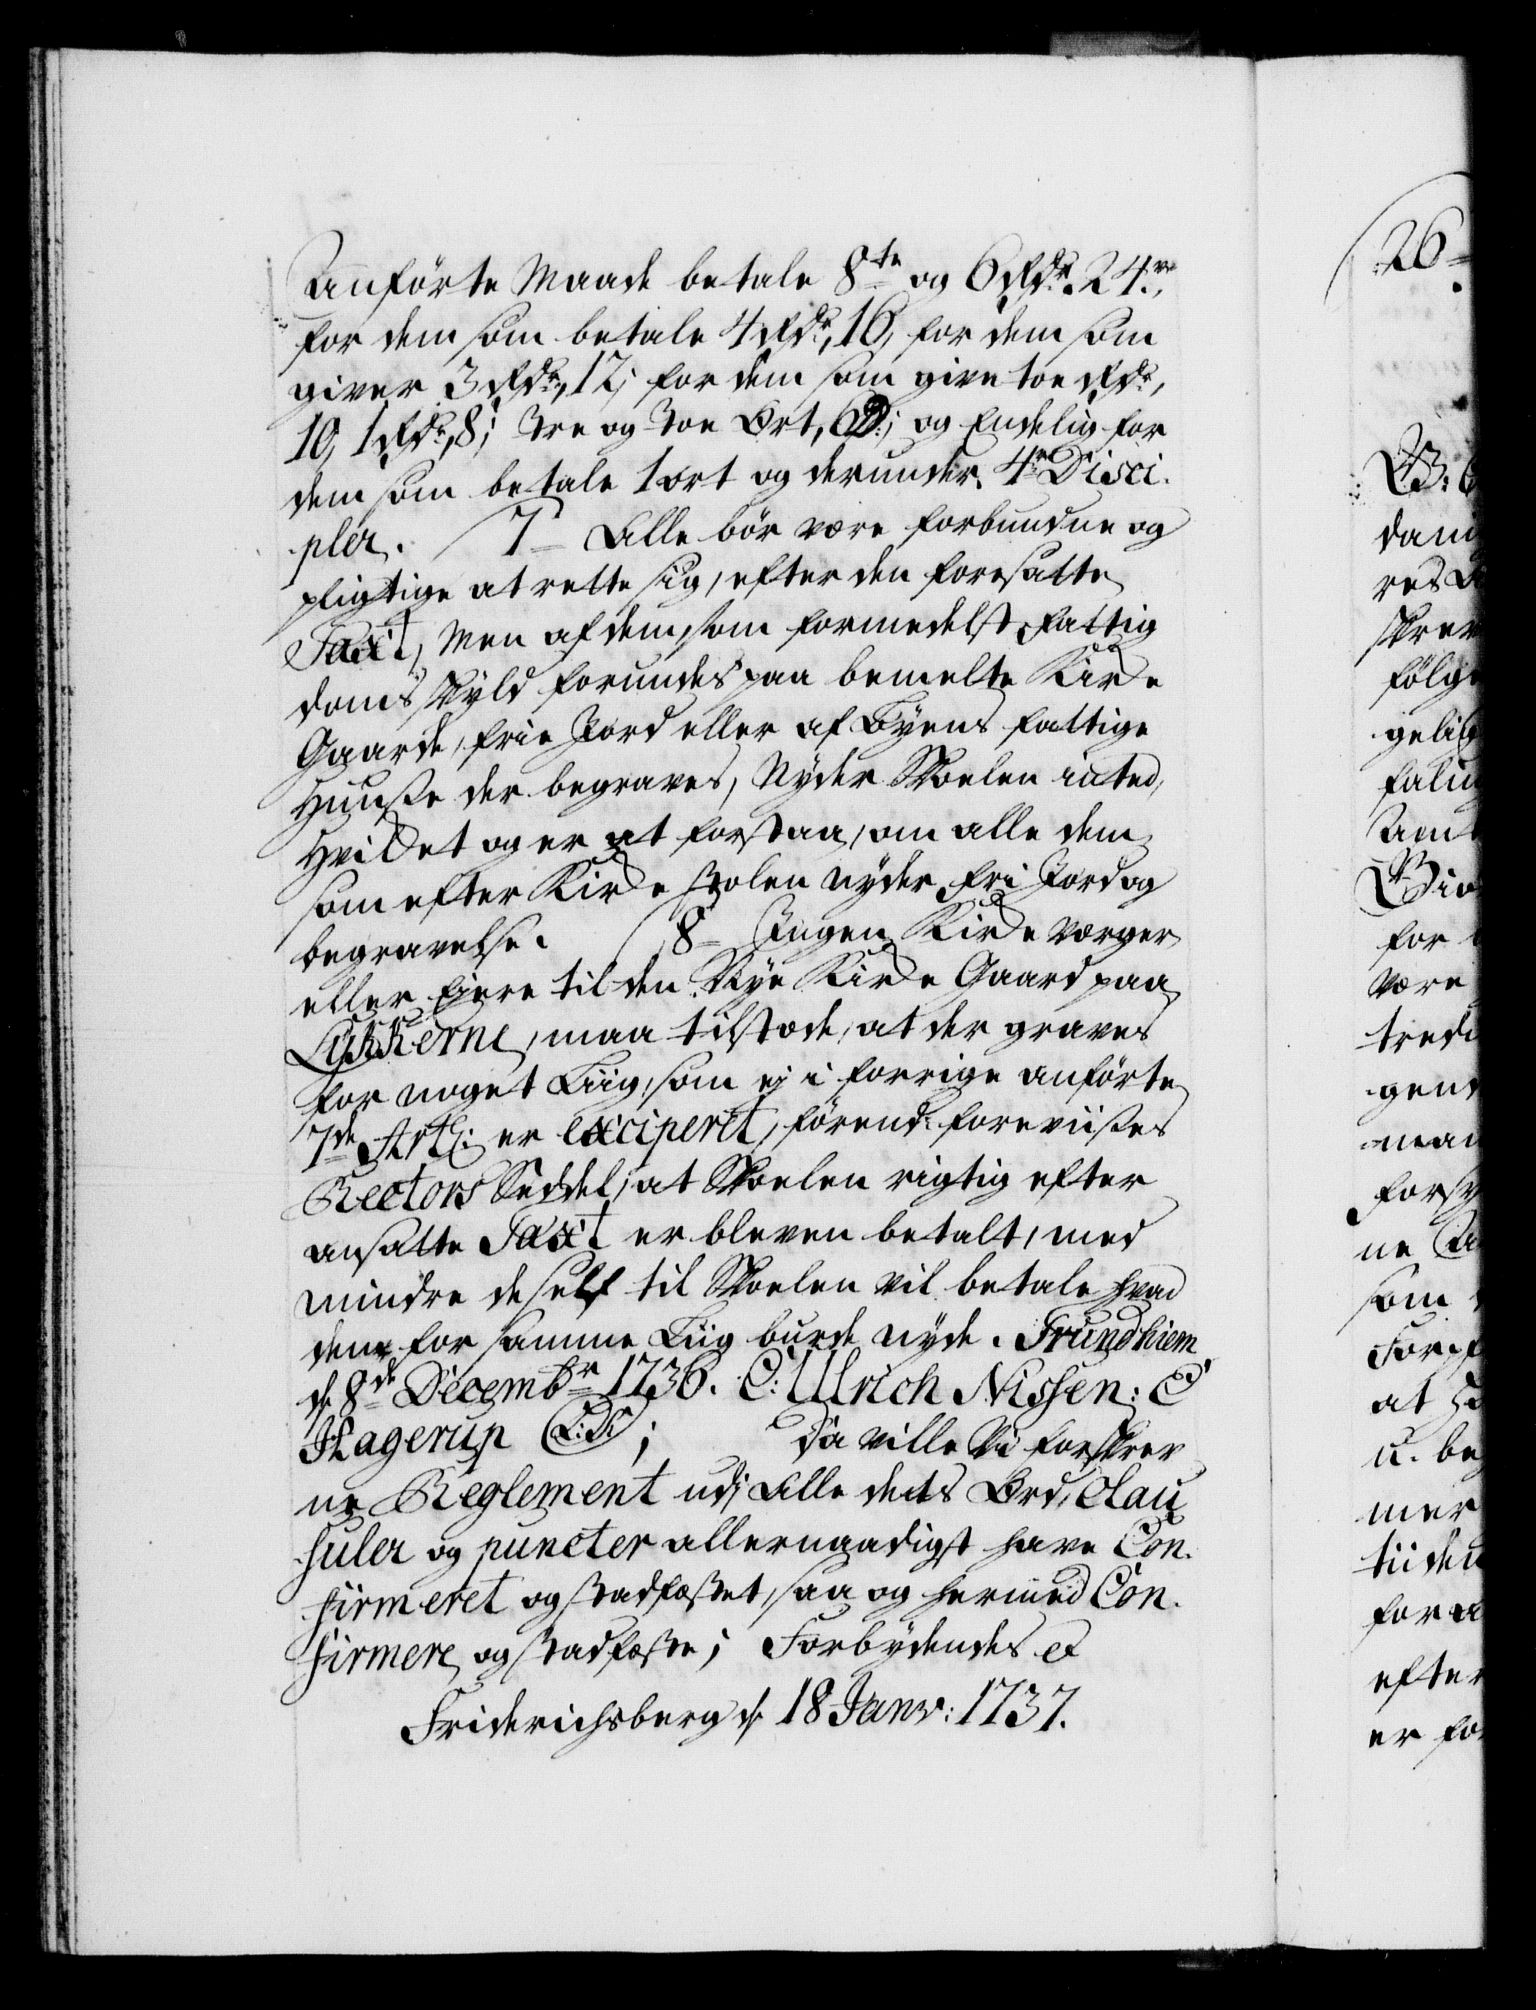 Anførte Maade betale 8te og 6 Rdr. 24re,
for dem som betale 4 Rdr, 16, for dem som
giver 3 Rdr, 12; for dem som give toe Rdr,
10, 1 Rdr, 8; tre og toe Ort, 6; og Endelig for
dem som betale 1 ort og derunder. 4re Disci-
pler. 7 Alle bør være forbundne og
pligtige at rette sig, efter den foresatte
Taxt, Men af dem, som formedelst Fattig
doms skyld forundes paa bemelte Kirke
Gaarde, frie Jord eller af Byens fattige
Huuse der begraves, Nyder Skoelen intet,
Hvilket og er at forstaa, om alle dem
som efter Kirke stolen nyder fri Jord og
begravelse. 8 Ingen Kirke værger
eller Ejere til den Nye Kirke Gaard paa
Lykkerne, maa tilstæde, at der graves
for noget Liig, som ej i forrige anførte
7de Artl: er exciperet, førend foreviises
Rectors Seddel, at Skoelen rigtig efter
ansatte Taxt er bleven betalt, med
mindre de self til Skoelen vil betale hvad
den for samme Liig burde nyde. Trundhiem
d. 8de Decembr 1736. C: Ullrich Nissen: E
Hagerup (L:S:); Da ville Vi forskrev
ne Reglement udi Alle dets Ord, Clau
suler og puncter allernaadigst have Con-
firmeret og stadfæstet, saa og hermed Con-
firmere og stadfæste; Forbydendes et
Friderichsberg d. 18 Janv: 1737.
26